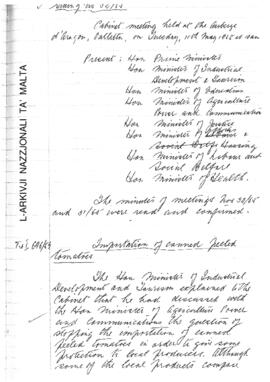 Meeting No 32/65
Cabinet meeting held at the Auberge
d'Aragon, Valletta, on Tuesday, 11th May 1965 at 9am
Present: Hon Prime Minister
Hon Minister of Industrial
Development & Tourism
Hon Minister of Education
Hon Minister of Agriculture
Power and Communication
Hon Minister of Justice
Hon Minister of Works &
Housing
Hon Minister of Labour and
Social Welfare
Hon Minister of Health.
The minutes of meetings Nos 30/65
and 31/65 were read and confirmed.
Importation of canned peeled
tomatoes
The Hon Minister of Industrial
Development and Tourism explained to the
Cabinet that he had discussed with
the Hon Minister of Agriculture Power
and Communications the question of
stopping the importation of canned
peeled tomatoes in order to give some
protection to local producers. Although
some of the local products compare
L-ARKIVJI NAZZJONALI TA' MALTA